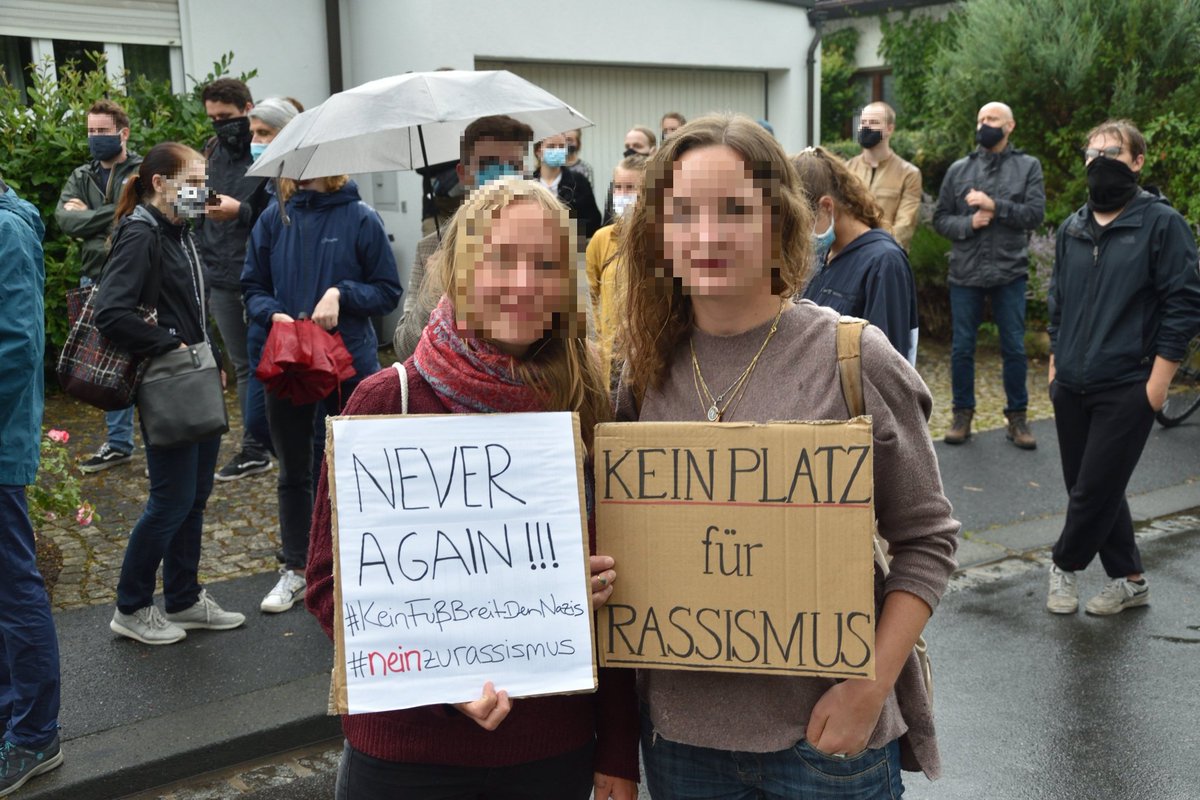 NEVER
AGAIN!!!
#KeinFußBreitDenNazis
#neinzurassismus
KEIN PLATZ
für
RASSISMUS